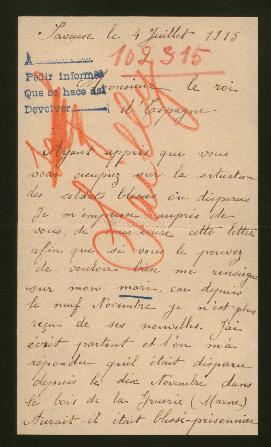 Saveuse le 4 Juillet 1915
102315
A
Pedir informes
Que se hace así
Devolver
Monsieur le roi
d'Espagne
Ayant appris que vous
vous occupiez sur la situation
des soldats blessés ou disparus
Je m'empresse auprès de
vous, de cette lettre
afin que si vous le pouvez
de vouloir bien me renseigner
sur mon mari car depuis
le neuf Novembre je n'est plus
reçue de ses nouvelles. J'ai
écrit partout et l'on m'a
répondu qu'il était disparu
depuis le dix Novembre dans
le bois de la Gruerie (Marne)
Aurait-il était blessé-prisonnier